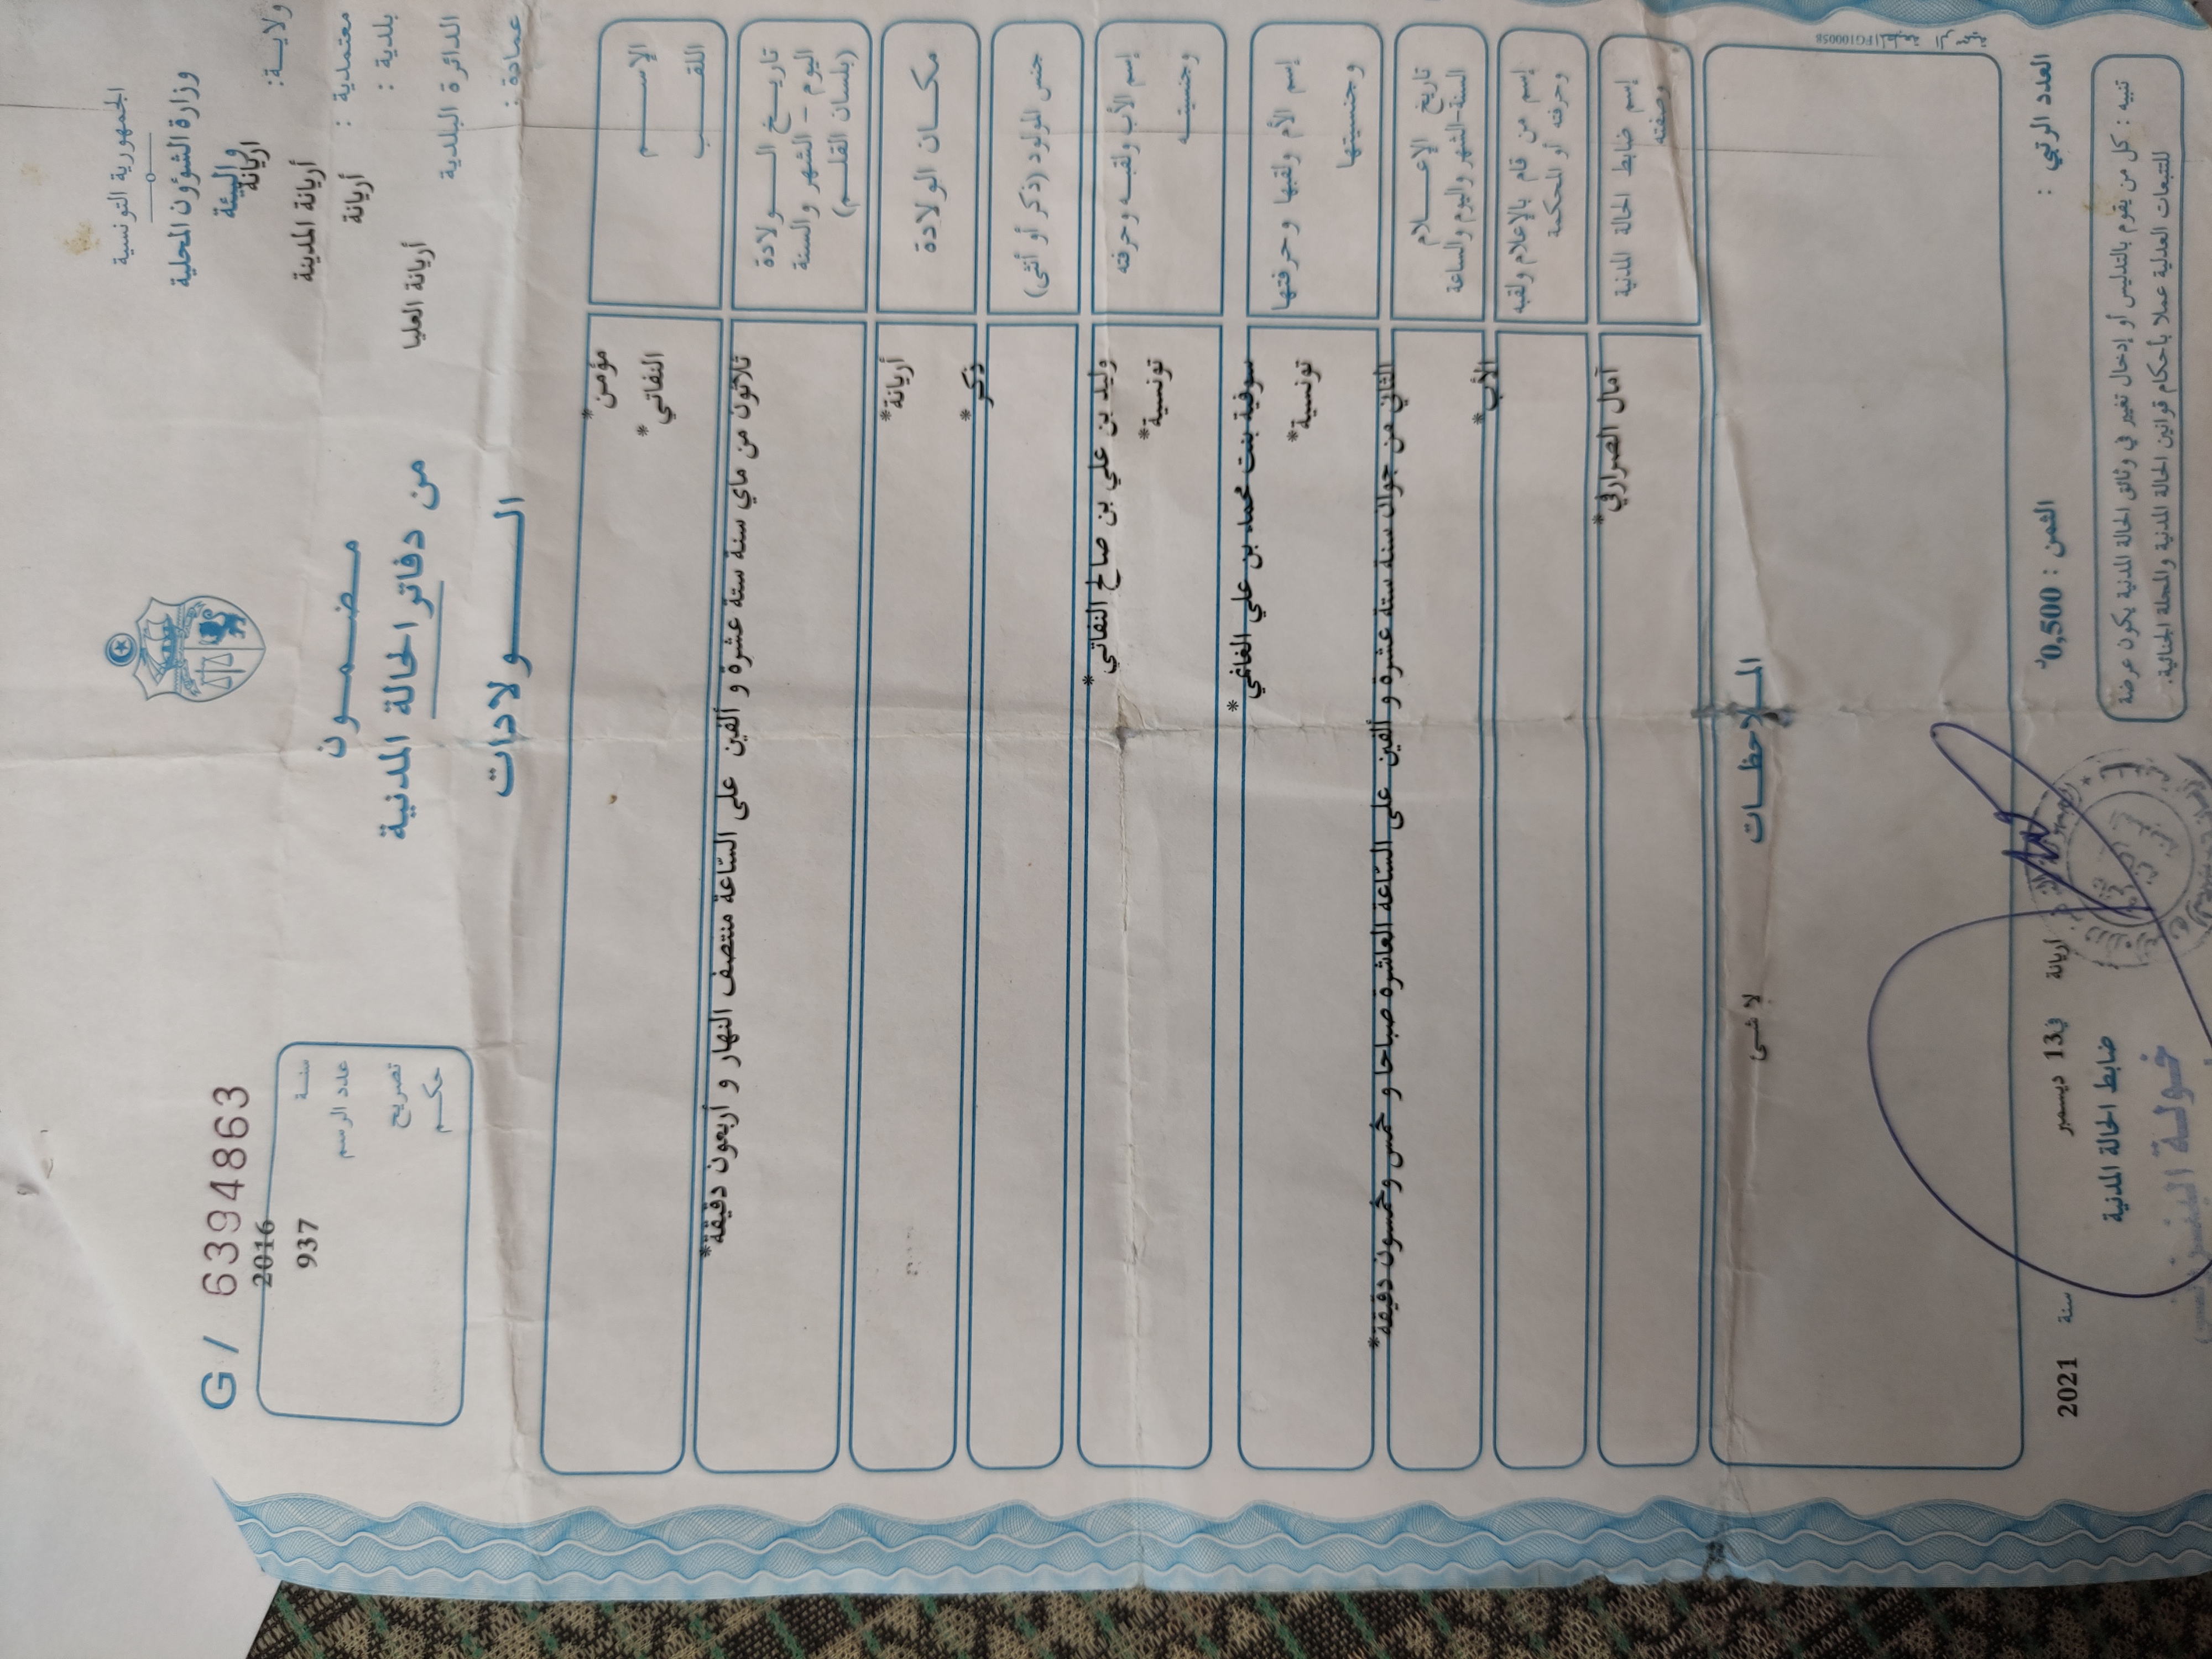 الجمهورية التونسية
وزارة الشؤون المحلية
والبيئة
ولاية: أريانة
معتمدية : أريانة المدينة
بلدية : أريانة
الدائرة البلدية أريانة العليا
عمادة :
مضمون
من دفاتر الحالة المدنية
الولادات
G / 6394863
سنة 2016
عدد الرسم 937
تصريح
حكم
الإسم مؤمن*
اللقب النفاتي*
تاريخ الولادة
اليوم - الشهر والسنة
(بلسان القلم)
ثلاثون من ماي سنة ستة عشرة و ألفين على الساعة منتصف النهار و أربعون دقيقة*
مكان الولادة أريانة*
جنس المولود (ذكر أو أنثى) ذكر*
إسم الأب ولقبه وحرفته وليد بن علي بن صالح النفاتي*
وجنسيته تونسية*
إسم الأم ولقبها وحرفتها سوفية بنت محمد بن علي الغانمي*
وجنسيتها تونسية*
تاريخ الإعلام
السنة-الشهر واليوم والساعة
الثاني من جوان سنة ستة عشرة و ألفين على الساعة العاشرة صباحا و خمس وخمسون دقيقة*
إسم من قام بالإعلام ولقبه
وحرفته أو المحكمة
الأب*
إسم ضابط الحالة المدنية
وصفته
آمال الصرارفي*
الملاحظات
لا شئ
FG100058
العدد الرتبي :
الثمن : 0,500د
أريانة في13 ديسمبر سنة 2021
ضابط الحالة المدنية
خولة
تنبيه : كل من يقوم بالتدليس أو إدخال تغيير في وثائق الحالة المدنية يكون عرضة
للتتبعات العدلية عملا بأحكام قوانين الحالة المدنية والمجلة الجنائية.